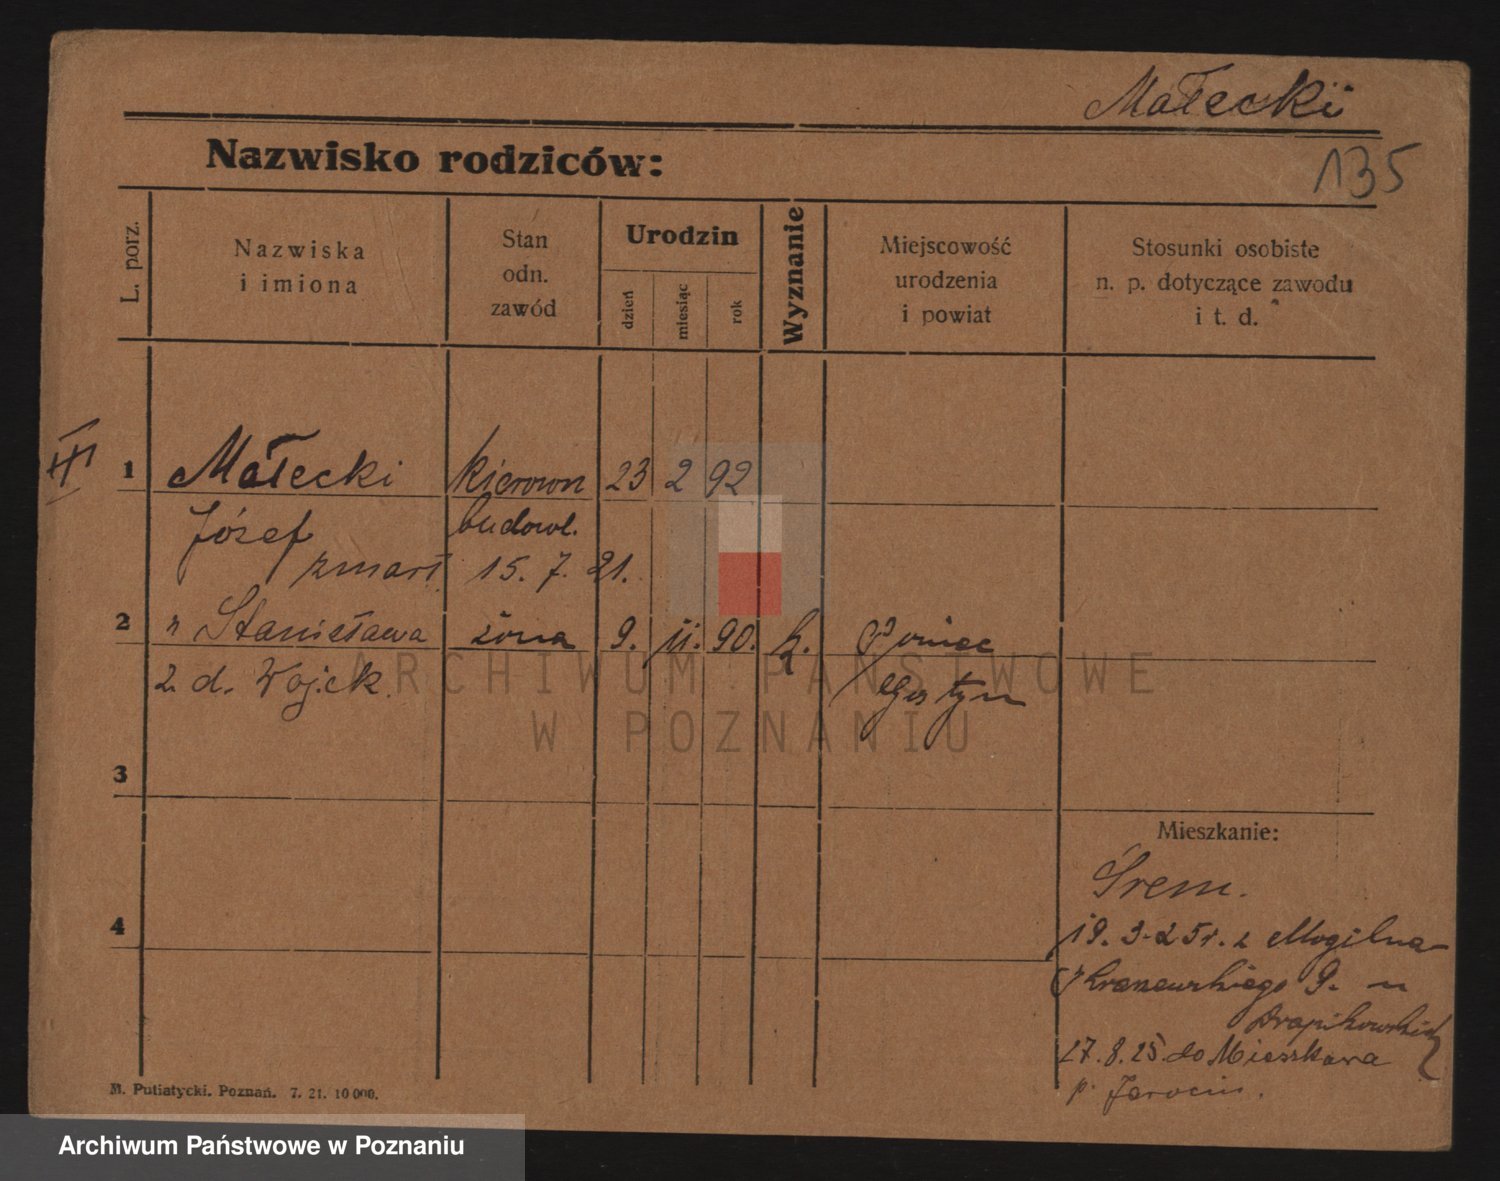 Małecki
135
Nazwisko rodziców:
L. porz.
Nazwiska
i imiona
Stan
odn.
zawód
Urodzin
dzień
miesiąc
rok
Wyznanie
Miejscowość
urodzenia
i powiat
Stosunki osobiste
n. p. dotyczące zawodu
i t. d.
1 Małecki kierown 23 2 92
Józef budowl.
zmarł 15. 7. 21.
2 " Stanisława żona 9. 11. 90. k. Poniec
z d. Wojck. Gostyn
3
4
Mieszkanie:
Śrem.
19. 3. 25 r. z Mogilna
9. u
27. 8. 25. do Mieszkowa
p. Jarocin.
M. Putiatycki. Poznań. 7. 21. 10 000.
ARCHIWUM PAŃSTWOWE
W POZNANIU
Archiwum Państwowe w Poznaniu